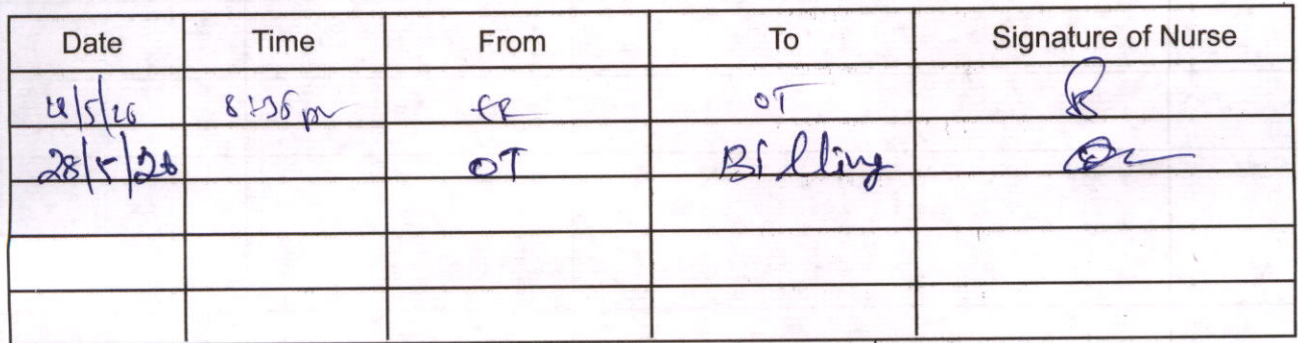 Date Time From To Signature of Nurse
28/5/26 8:36 pm ER OT
28/5/26 OT Billing